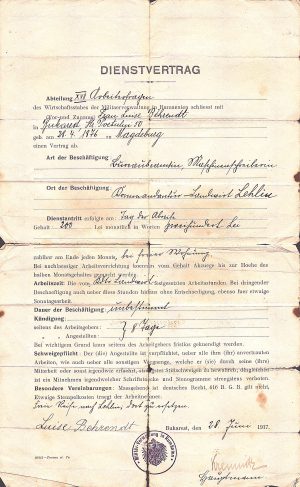 DIENSTVERTRAG
Abteilung XVI Arbeiterfragen
des Wirtschaftsstabes der Militaerverwaltung in Rumaenien schliesst mit
(Vor- und Zuname) Frau Luise Behrendt
in Bukarest Str.
geb. am 28. 4. 1876 in Magdeburg
einen Vertrag ab.
Art der Beschäftigung
Büroarbeiten Maschinenschreiberin
Ort der Beschäftigung
Kommandantur Lehliu
Dienstantritt erfolgte am: Tag der Abreise
Gehalt 200 Lei monatlich in Worten zweihundert Lei
zahlbar am Ende jeden Monats, bei freier Wohnung
Bei nachlässiger Arbeitsverrichtung kommen vom Gehalt Abzuege bis zur Hoehe des
halben Monatsgehaltes
Arbeitszeit: Die vom festgesetzten Arbeitsstunden. Bei dringender
Beschäftigung auch ueber diese Stunden hinaus ohne Entschaedigung, ebenso fuer etwaige
Sonntagsarbeit.
Dauer der Beschäftigung: unbestimmt
Kündigung:
seitens des Arbeitgebers:
8 Tage
„ „ Angestellten:
Bei wichtigem Grund kann seitens des Arbeitgebers fristlos gekuendigt werden.
Schweigepflicht: Der (die) Angestellte ist verpflichtet, ueber alle ihm (ihr) anvertrauten
Arbeiten, wie auch ueber alle sonstigen Vorgaenge, welche er (sie) durch seine (ihre)
Mitarbeit oder sonst irgendwie erfaehrt, strengstes Stillschweigen zu bewahren, dringlichst
ist ein Mitnehmen irgendwelcher Schriftstuecke und Stenogramme strengstens verboten.
Besondere Vereinbarungen: Massgebend ist deutsches Recht, 616 B. G. B. gilt nicht.
Etwaige Stempelkosten traegt der Arbeitnehmer.
Luise Behrendt
Bukarest, den 28. Juni 1917.
Hauptmann